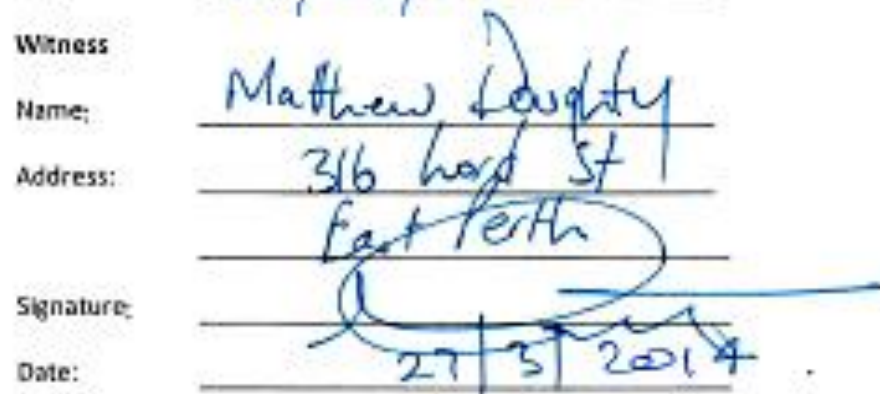 Witness
Name: Matthew Doughty
Address: 316 Lord St
East Perth
Signature:
Date: 27/3/2014